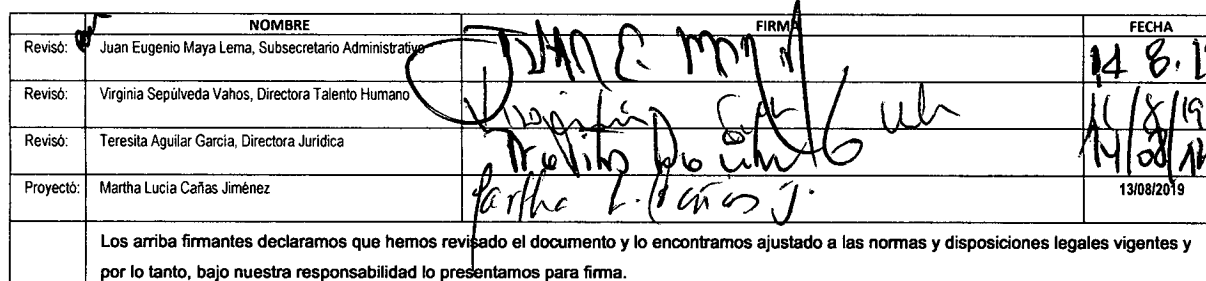 NOMBRE FIRMA FECHA
Revisó: Juan Eugenio Maya Lema, Subsecretario Administrativo JUAN E. MAYA 14 8.1
Revisó: Virginia Sepúlveda Vahos, Directora Talento Humano Virginia /8/19
Revisó: Teresita Aguilar García, Directora Jurídica Teresita 14/08/
Proyectó: Martha Lucía Cañas Jiménez Martha L. Cañas J. 13/08/2019
Los arriba firmantes declaramos que hemos revisado el documento y lo encontramos ajustado a las normas y disposiciones legales vigentes y
por lo tanto, bajo nuestra responsabilidad lo presentamos para firma.